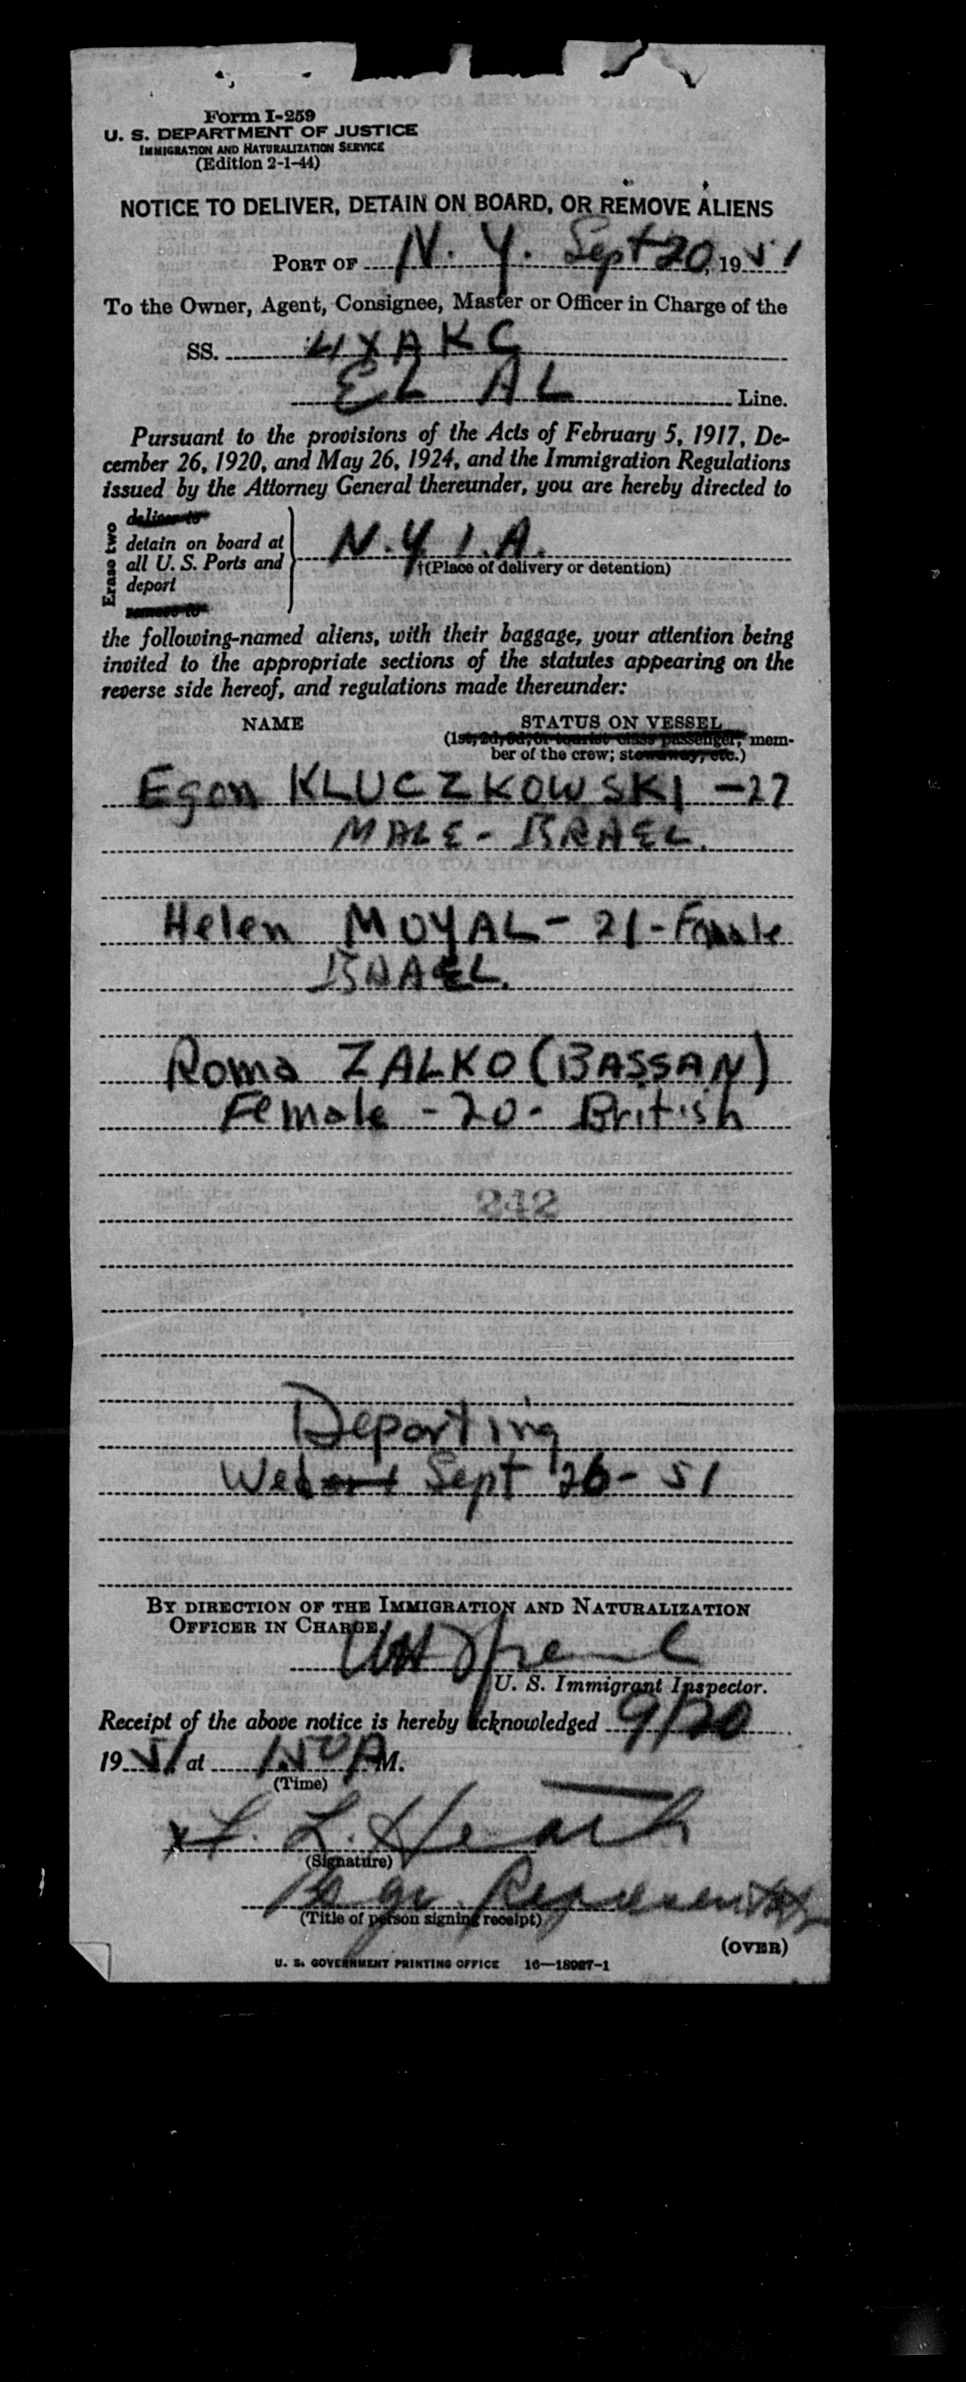 Form I-259
U. S. DEPARTMENT OF JUSTICE
IMMIGRATION AND NATURALIZATION SERVICE
(Edition 2-1-44)
NOTICE TO DELIVER, DETAIN ON BOARD, OR REMOVE ALIENS
PORT OF N. Y. Sept 20, 1951
To the Owner, Agent, Consignee, Master or Officer in Charge of the
SS. 4XAKC
EL AL Line.
Pursuant to the provisions of the Acts of February 5, 1917, De-
cember 26, 1920, and May 26, 1924, and the Immigration Regulations
issued by the Attorney General thereunder, you are hereby directed to
Erase two
deliver to
detain on board at
all U. S. Ports and
deport
remove to
N.Y.I.A.
†(Place of delivery or detention)
the following-named aliens, with their baggage, your attention being
invited to the appropriate sections of the statutes appearing on the
reverse side hereof, and regulations made thereunder:
NAME STATUS ON VESSEL
(1st, 2d, 3d, or tourist class passenger; mem-
ber of the crew; stowaway, etc.)
Egon KLUCZKOWSKI -27
MALE - ISRAEL.
Helen MOYAL - 21 - Female
ISRAEL.
Roma ZALKO (BASSAN)
Female - 20 - British
242
Departing
Wed Sept 26 - 51
BY DIRECTION OF THE IMMIGRATION AND NATURALIZATION
OFFICER IN CHARGE.
U. S. Immigrant Inspector.
Receipt of the above notice is hereby acknowledged 9/20
1951 at 1:50 PM.
(Time)
L. Heath
(Signature)
Representative
(Title of person signing receipt)
(OVER)
U. S. GOVERNMENT PRINTING OFFICE 16—18987-1